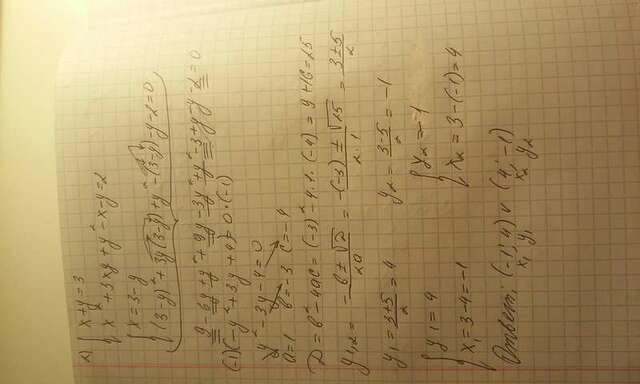 2) { x+y=3
x²+3xy+y²-x-y=2
{ x=3-y
(3-y)²+3y(3-y)+y²-(3-y)-y-2=0
9-6y+y²+9y-3y²+y²-3+y-y-2=0
(-1)(-y²+3y+4)=0·(-1)
y²-3y-4=0
a=1 b=-3 c=-4
D=b²-4ac=(-3)²-4·1·(-4)=9+16=25
y1,2= (-b±√D)/2a = (-(-3)±√25)/(2·1) = (3±5)/2
y1=(3+5)/2=4 y2=(3-5)/2=-1
{ y1=4 { y2=-1
x1=3-4=-1 x2=3-(-1)=4
Ответ: (-1; 4) v (4; -1)
x1 y1 x2 y2